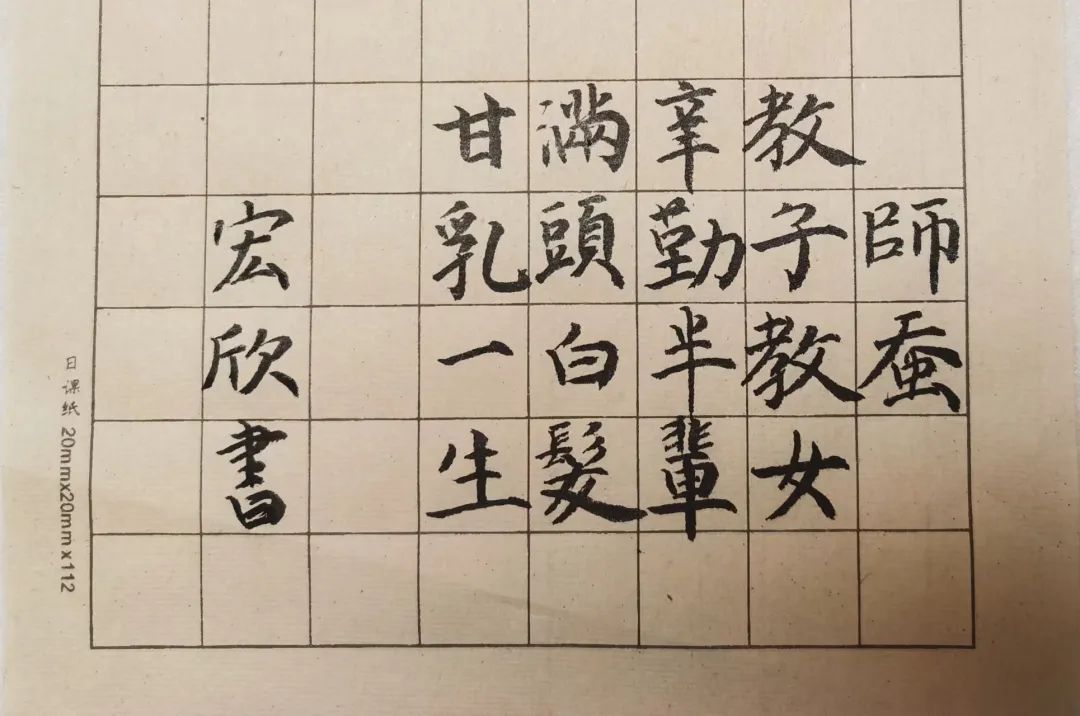 師蚕
教子教女
辛勤半輩
滿頭白髮
甘乳一生
宏欣書
日课纸 20mmx20mmx112